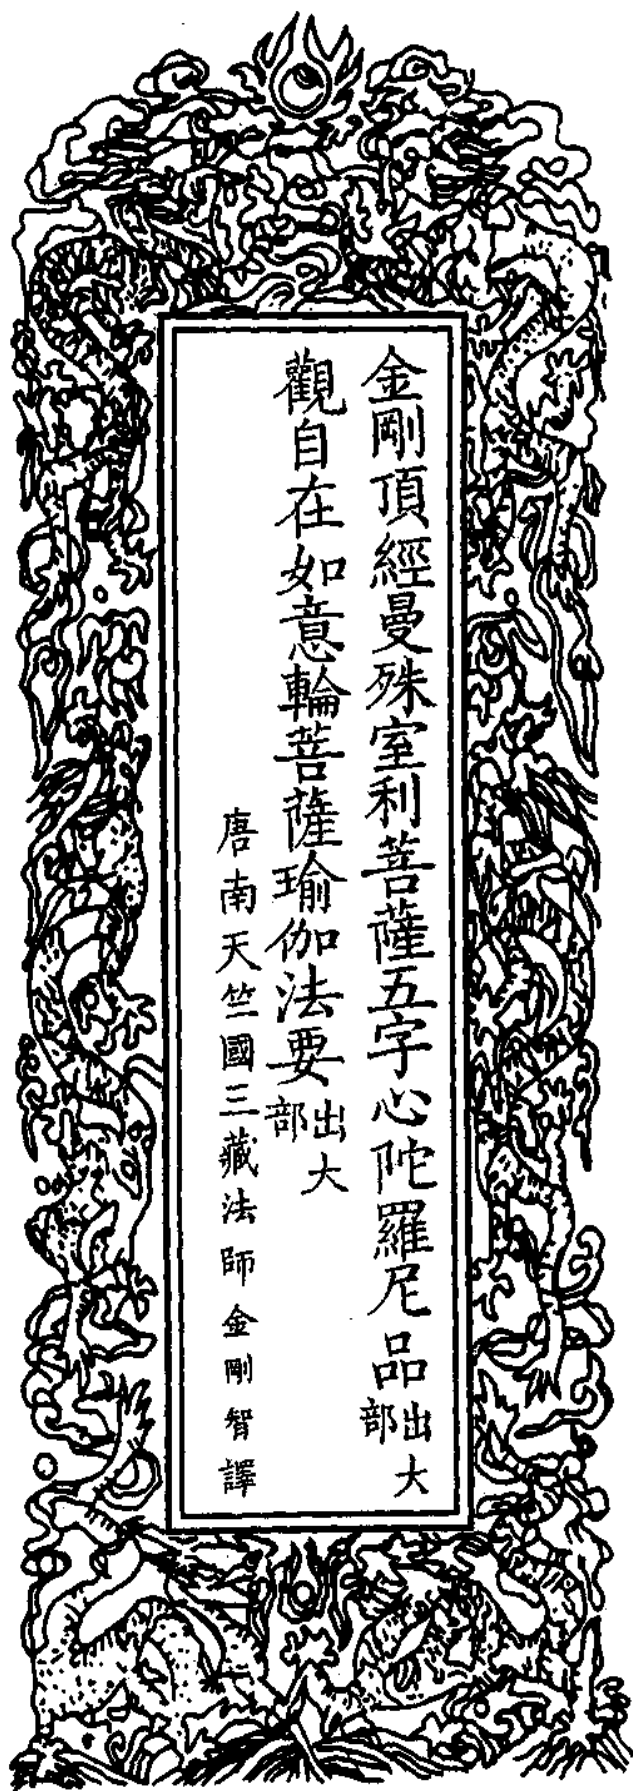 金剛頂經曼殊室利菩薩五字心陀羅尼品出大部
觀自在如意輪菩薩瑜伽法要出大部
唐南天竺國三藏法師金剛智譯